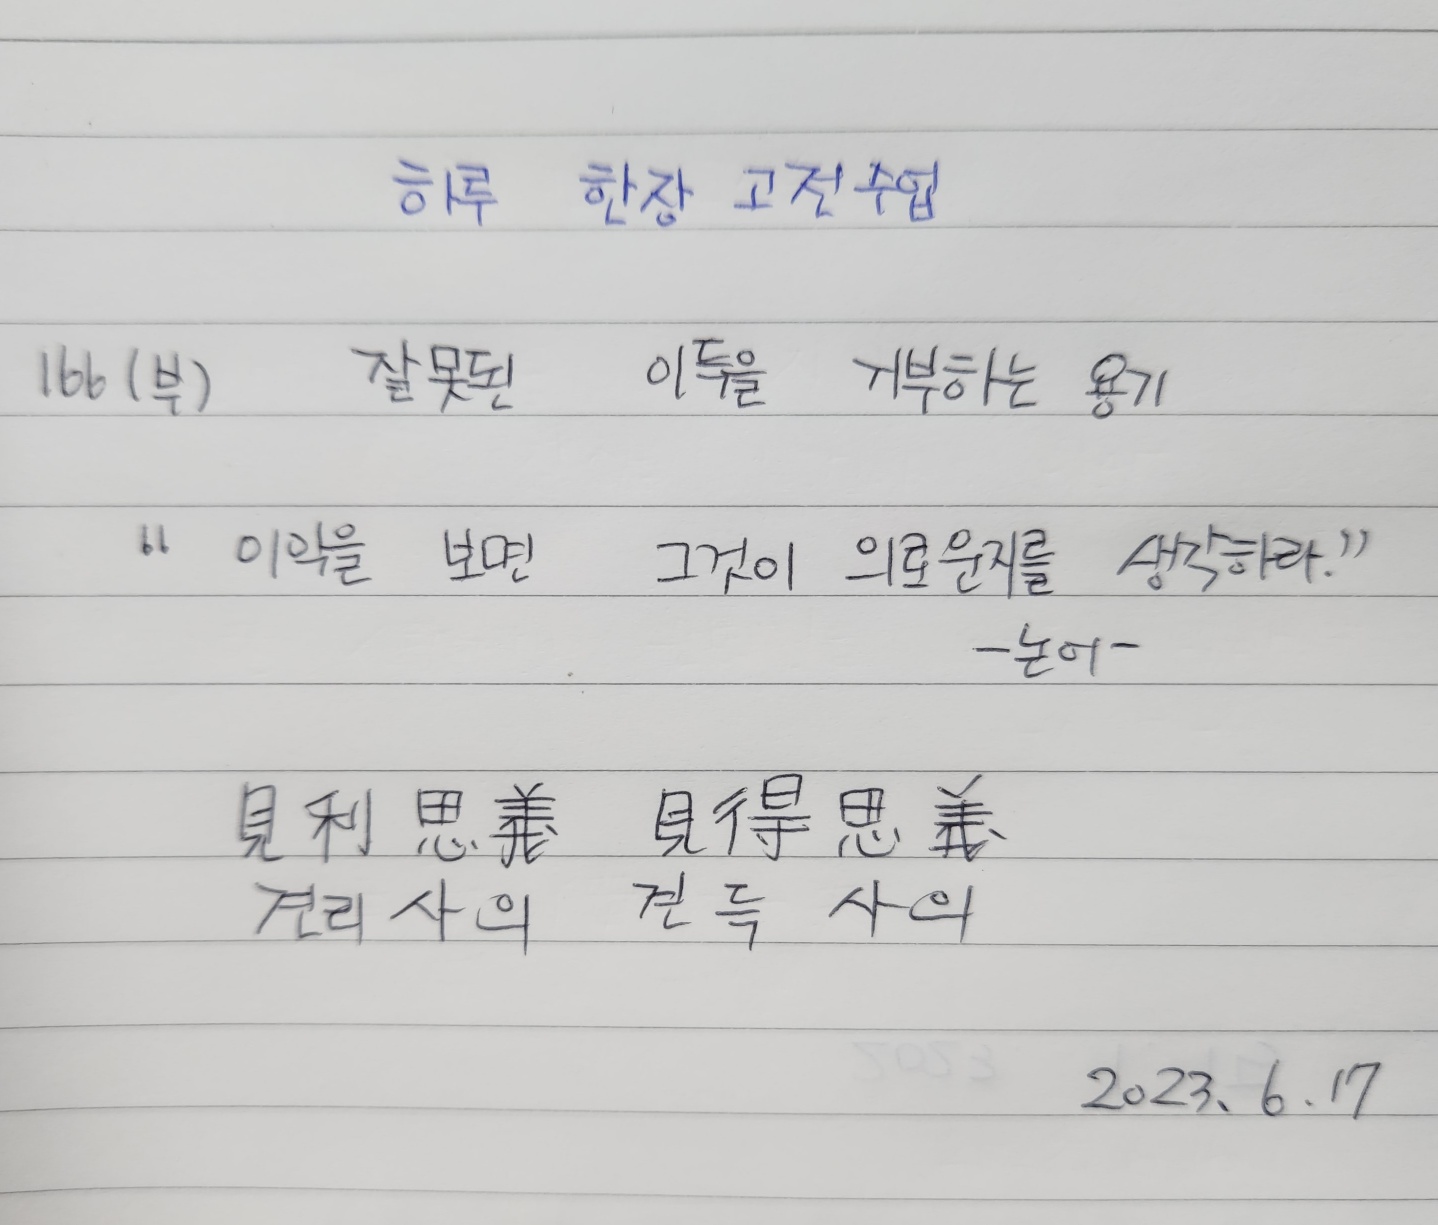 하루 한장 고전수업
166(부) 잘못된 이득을 거부하는 용기
“ 이익을 보면 그것이 의로운지를 생각하라.”
-논어-
見利思義 見得思義
견리사의 견득사의
2023. 6. 17